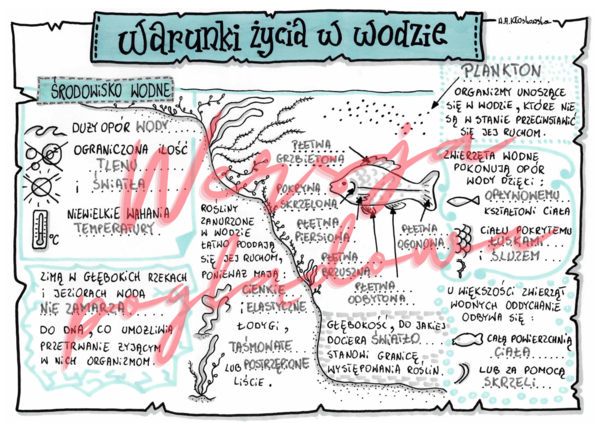 Warunki życia w wodzie
A.A.Kłosłowska
ŚRODOWISKO WODNE
DUŻY OPÓR WODY
OGRANICZONA ILOŚĆ
TLENU
I ŚWIATŁA
NIEWIELKIE WAHANIA
TEMPERATURY
°C
ZIMĄ W GŁĘBOKICH RZEKACH
I JEZIORACH WODA
NIE ZAMARZA
DO DNA, CO UMOŻLIWIA
PRZETRWANIE ŻYJĄCYM
W NICH ORGANIZMOM.
ROŚLINY
ZANURZONE
W WODZIE
ŁATWO PODDAJĄ
SIĘ JEJ RUCHOM,
PONIEWAŻ MAJĄ
CIENKIE
I ELASTYCZNE
ŁODYGI,
TAŚMOWATE
LUB POSTRZĘPIONE
LIŚCIE.
PŁETWA
GRZBIETOWA
POKRYWA
SKRZELOWA
PŁETWA
PIERSIOWA
PŁETWA
BRZUSZNA
PŁETWA
ODBYTOWA
PŁETWA
OGONOWA
GŁĘBOKOŚĆ, DO JAKIEJ
DOCIERA ŚWIATŁO
STANOWI GRANICĘ
WYSTĘPOWANIA ROŚLIN.
PLANKTON
ORGANIZMY UNOSZĄCE
SIĘ W WODZIE, KTÓRE NIE
SĄ W STANIE PRZECIWSTAWIĆ
SIĘ JEJ RUCHOM.
ZWIERZĘTA WODNE
POKONUJĄ OPÓR
WODY DZIĘKI:
OPŁYWOWEMU
KSZTAŁTOWI CIAŁA
CIAŁU POKRYTEMU
ŁUSKAMI
I ŚLUZEM
U WIĘKSZOŚCI ZWIERZĄT
WODNYCH ODDYCHANIE
ODBYWA SIĘ:
CAŁĄ POWIERZCHNIĄ
CIAŁA
LUB ZA POMOCĄ
SKRZELI
Wersja
poglądowa